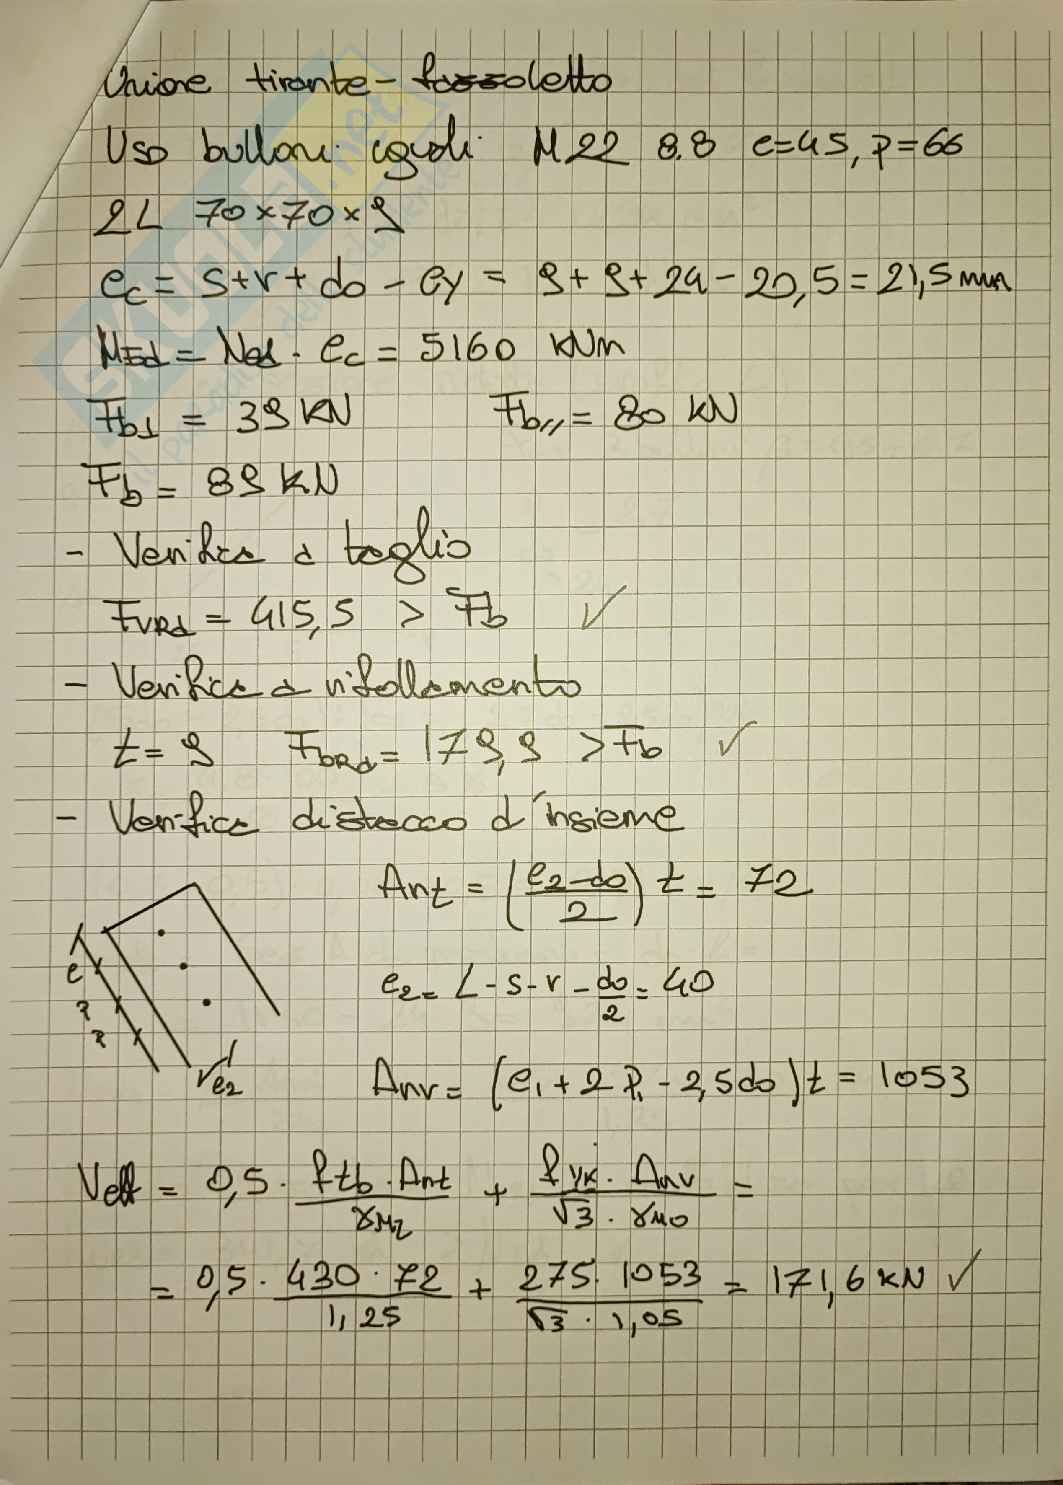 Unione tirante - fazzoletto
Uso bulloni uguali M22 8.8 e=45, p=66
2L 70×70×9
ec = s+r+do - ey = 9+9+24-20,5 = 21,5 mm
MEd = Ned · ec = 5160 kNm
Fb⊥ = 39 kN Fb// = 80 kN
Fb = 89 kN
- Verifica a taglio
FVRd = 415,5 > Fb ✓
- Verifica a rifollamento
t = 9 FbRd = 179,9 > Fb ✓
- Verifica distacco d'insieme
Ant = (e2-do/2) t = 72
e
p
p
e2
e2 = L-s-r-do/2 = 40
Anv = (e1+2P1-2,5do)t = 1053
Veff = 0,5 · ftb·Ant/γM2 + fyk·Anv/√3·γM0 =
= 0,5 · 430·72/1,25 + 275·1053/√3·1,05 = 171,6 kN ✓